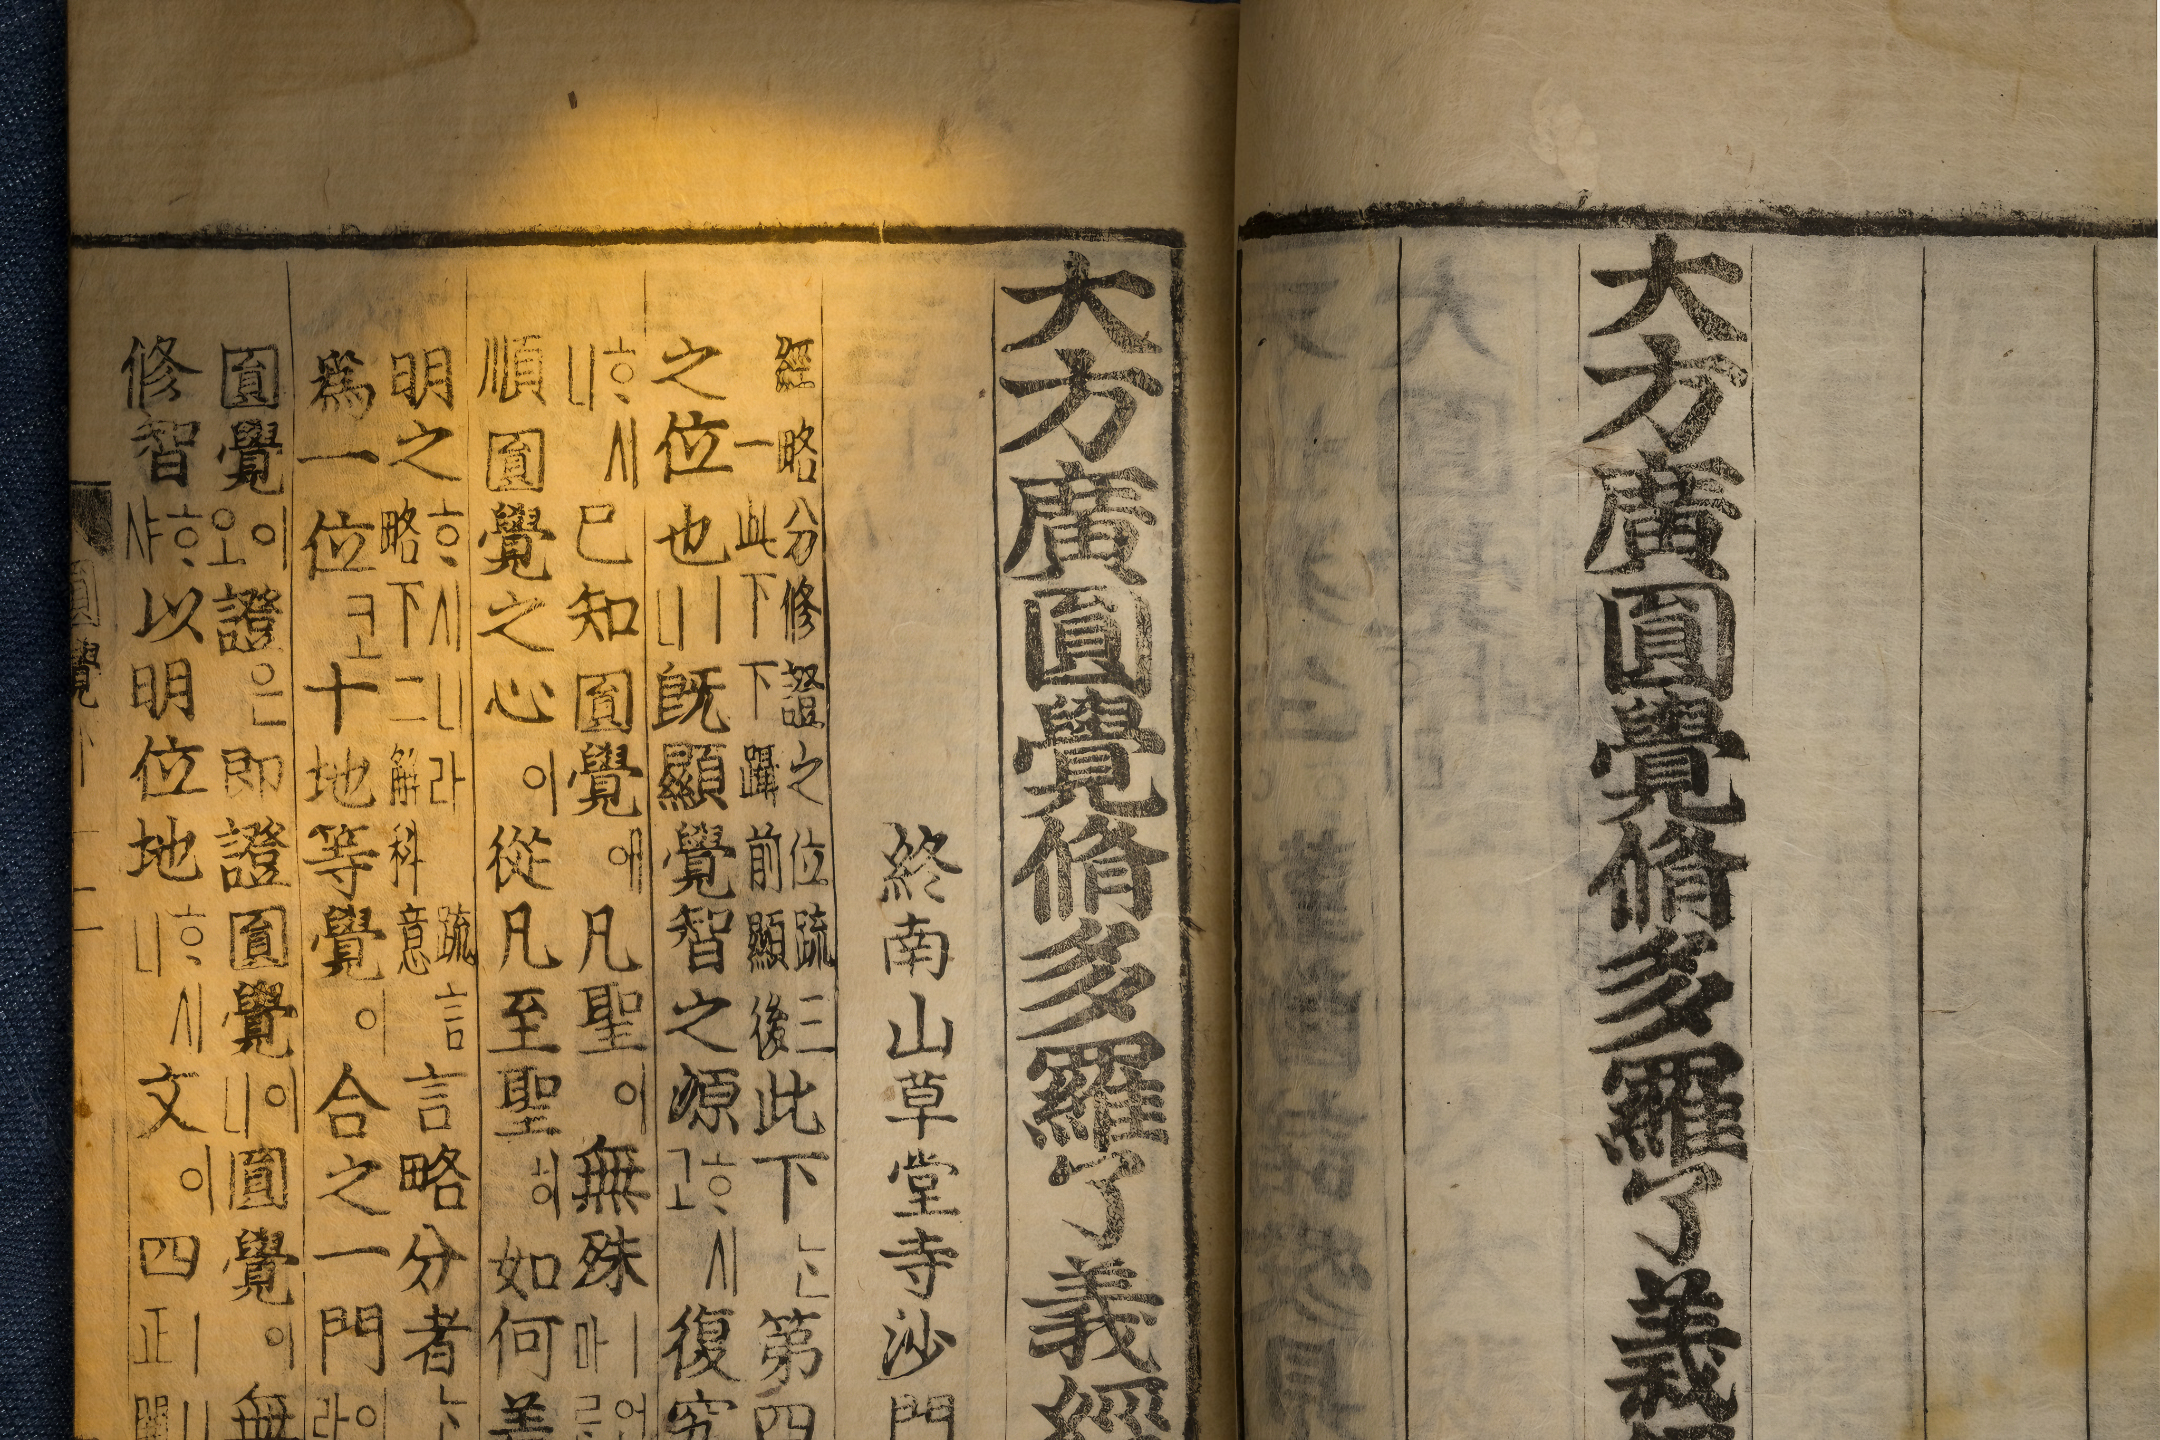 大方廣圓覺脩多羅了義經
大方廣圓覺脩多羅了義經
終南山草堂寺沙門
經略分修證之位疏三
一此下下躡前顯後
此下ᄂᆞᆫ第四
之位也ㅣ니旣顯覺智之源ᄒᆞ시고復究
ᄒᆞ시니已知圓覺애凡聖이無殊ㅣ언마ᄅᆞᆫ
順圓覺之心이從凡至聖히如何
明之ᄒᆞ시니라略下二解科意疏言言略分者ᄂᆞᆫ
爲一位코十地等覺이合之一門이라
圓覺이오證은即證圓覺이니圓覺이無
修智ᄒᆞ샤以明位地ᄒᆞ시니文이四ㅣ니正
圓覺下
二